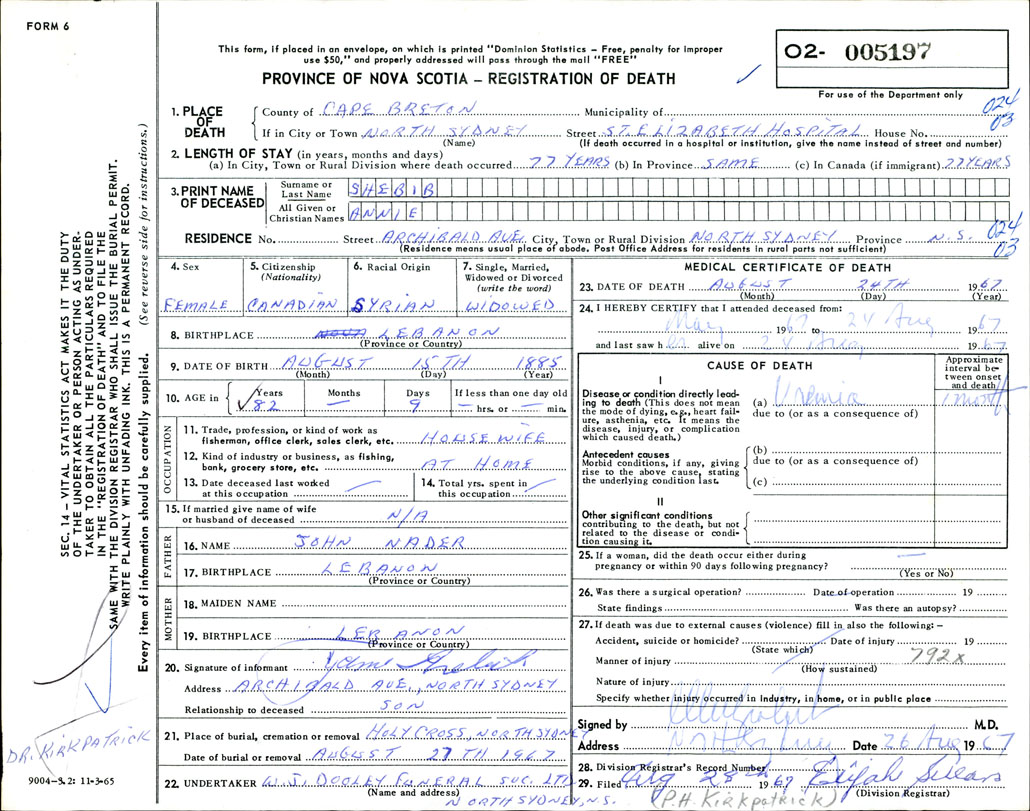 FORM 6
This form, if placed in an envelope, on which is printed "Dominion Statistics – Free, penalty for improper
use $50," and properly addressed will pass through the mail "FREE"
PROVINCE OF NOVA SCOTIA – REGISTRATION OF DEATH
02- 005197
For use of the Department only
1. PLACE OF DEATH
County of CAPE BRETON Municipality of
024
03
If in City or Town NORTH SYDNEY Street ST. ELIZABETH HOSPITAL House No.
(Name) (If death occurred in a hospital or institution, give the name instead of street and number)
2. LENGTH OF STAY (in years, months and days)
(a) In City, Town or Rural Division where death occurred 77 YEARS (b) In Province SAME (c) In Canada (if immigrant) 77 YEARS
3. PRINT NAME OF DECEASED
Surname or Last Name SHEBIB
All Given or Christian Names ANNIE
024
03
RESIDENCE No. Street ARCHIBALD AVE. City, Town or Rural Division NORTH SYDNEY Province N.S.
(Residence means usual place of abode. Post Office Address for residents in rural parts not sufficient)
4. Sex
FEMALE
5. Citizenship
(Nationality)
CANADIAN
6. Racial Origin
SYRIAN
7. Single, Married,
Widowed or Divorced
(write the word)
WIDOWED
8. BIRTHPLACE LEBANON
(Province or Country)
9. DATE OF BIRTH AUGUST 15TH 1885
(Month) (Day) (Year)
10. AGE in
Years Months Days If less than one day old
82 — 9 — hrs. or — min.
OCCUPATION
11. Trade, profession, or kind of work as
fisherman, office clerk, sales clerk, etc. HOUSEWIFE
12. Kind of industry or business, as fishing,
bank, grocery store, etc. AT HOME
13. Date deceased last worked
at this occupation
14. Total yrs. spent in
this occupation
15. If married give name of wife
or husband of deceased N/A
FATHER
16. NAME JOHN NADER
17. BIRTHPLACE LEBANON
(Province or Country)
MOTHER
18. MAIDEN NAME
19. BIRTHPLACE LEBANON
(Province or Country)
20. Signature of informant
Address ARCHIBALD AVE., NORTH SYDNEY
Relationship to deceased SON
21. Place of burial, cremation or removal HOLY CROSS, NORTH SIDNEY
Date of burial or removal AUGUST 27TH 1967
22. UNDERTAKER W.J. DOOLEY FUNERAL SVC. LTD
(Name and address)
NORTH SYDNEY, N.S.
MEDICAL CERTIFICATE OF DEATH
23. DATE OF DEATH AUGUST 24TH 1967
(Month) (Day) (Year)
24. I HEREBY CERTIFY that I attended deceased from:
May 1967 to 24 Aug 1967
and last saw h er alive on 24 Aug 1967
CAUSE OF DEATH
Approximate interval between onset and death
I
Disease or condition directly leading to death (This does not mean the mode of dying, e.g., heart failure, asthenia, etc. It means the disease, injury, or complication which caused death.)
(a) Uremia 1 month
due to (or as a consequence of)
Antecedent causes
Morbid conditions, if any, giving rise to the above cause, stating the underlying condition last.
(b)
due to (or as a consequence of)
(c)
II
Other significant conditions
contributing to the death, but not related to the disease or condition causing it.
25. If a woman, did the death occur either during
pregnancy or within 90 days following pregnancy? —
(Yes or No)
26. Was there a surgical operation? Date of operation 19
State findings Was there an autopsy?
27. If death was due to external causes (violence) fill in also the following: –
Accident, suicide or homicide? Date of injury 19
(State which)
Manner of injury 792x
(How sustained)
Nature of injury
Specify whether injury occurred in industry, in home, or in public place
Signed by M.D.
Address Date 26 Aug 1967
28. Division Registrar's Record Number
29. Filed Aug 28th 1967 Elijah
(P.H. Kirkpatrick) (Division Registrar)
SEC. 14 – VITAL STATISTICS ACT MAKES IT THE DUTY
OF THE UNDERTAKER OR PERSON ACTING AS UNDER-
TAKER TO OBTAIN ALL THE PARTICULARS REQUIRED
IN THE "REGISTRATION OF DEATH" AND TO FILE THE
SAME WITH THE DIVISION REGISTRAR WHO SHALL ISSUE THE BURIAL PERMIT.
WRITE PLAINLY WITH UNFADING INK. THIS IS A PERMANENT RECORD.
Every item of information should be carefully supplied. (See reverse side for instructions.)
DR. KIRKPATRICK
9004-S.2: 11-3-65